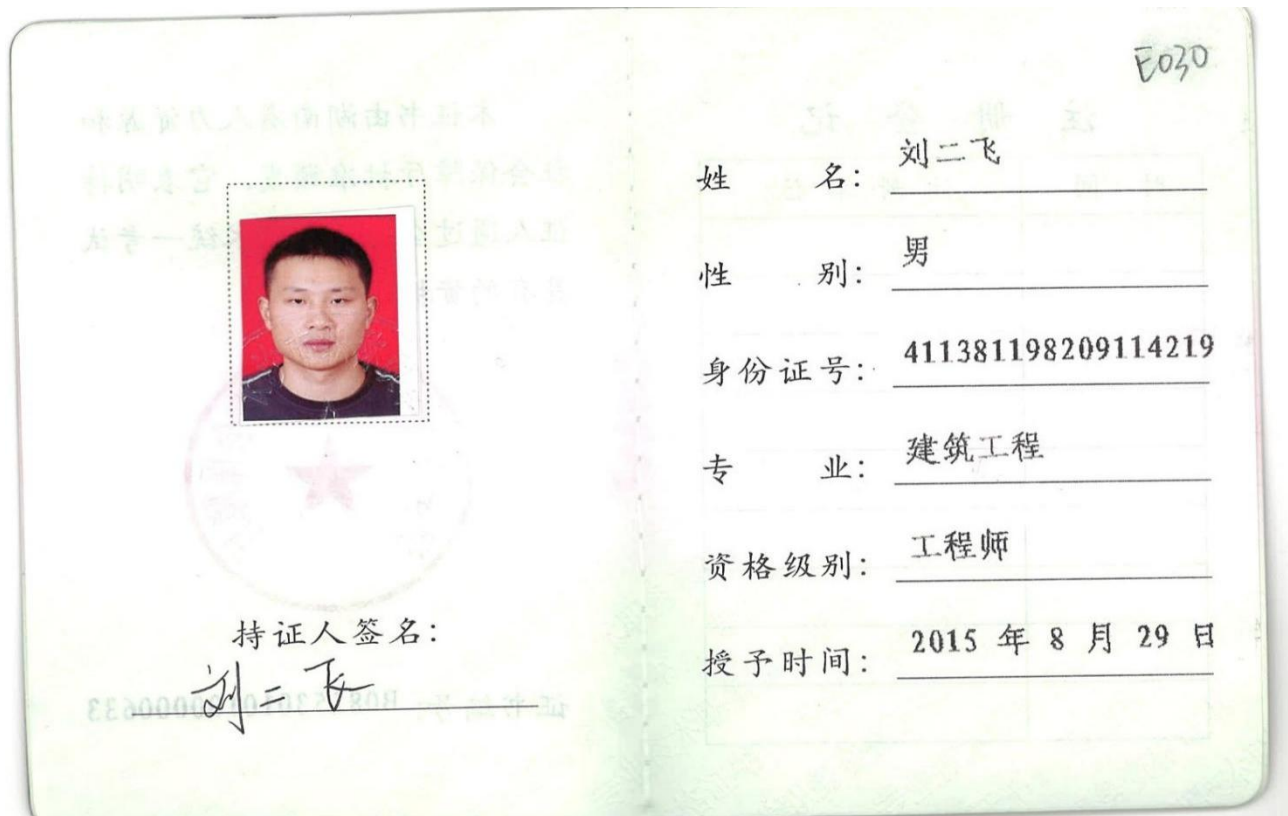 持证人签名：
刘二飞
E030
姓 名： 刘二飞
性 别： 男
身份证号： 411381198209114219
专 业： 建筑工程
资格级别： 工程师
授予时间： 2015 年 8 月 29 日